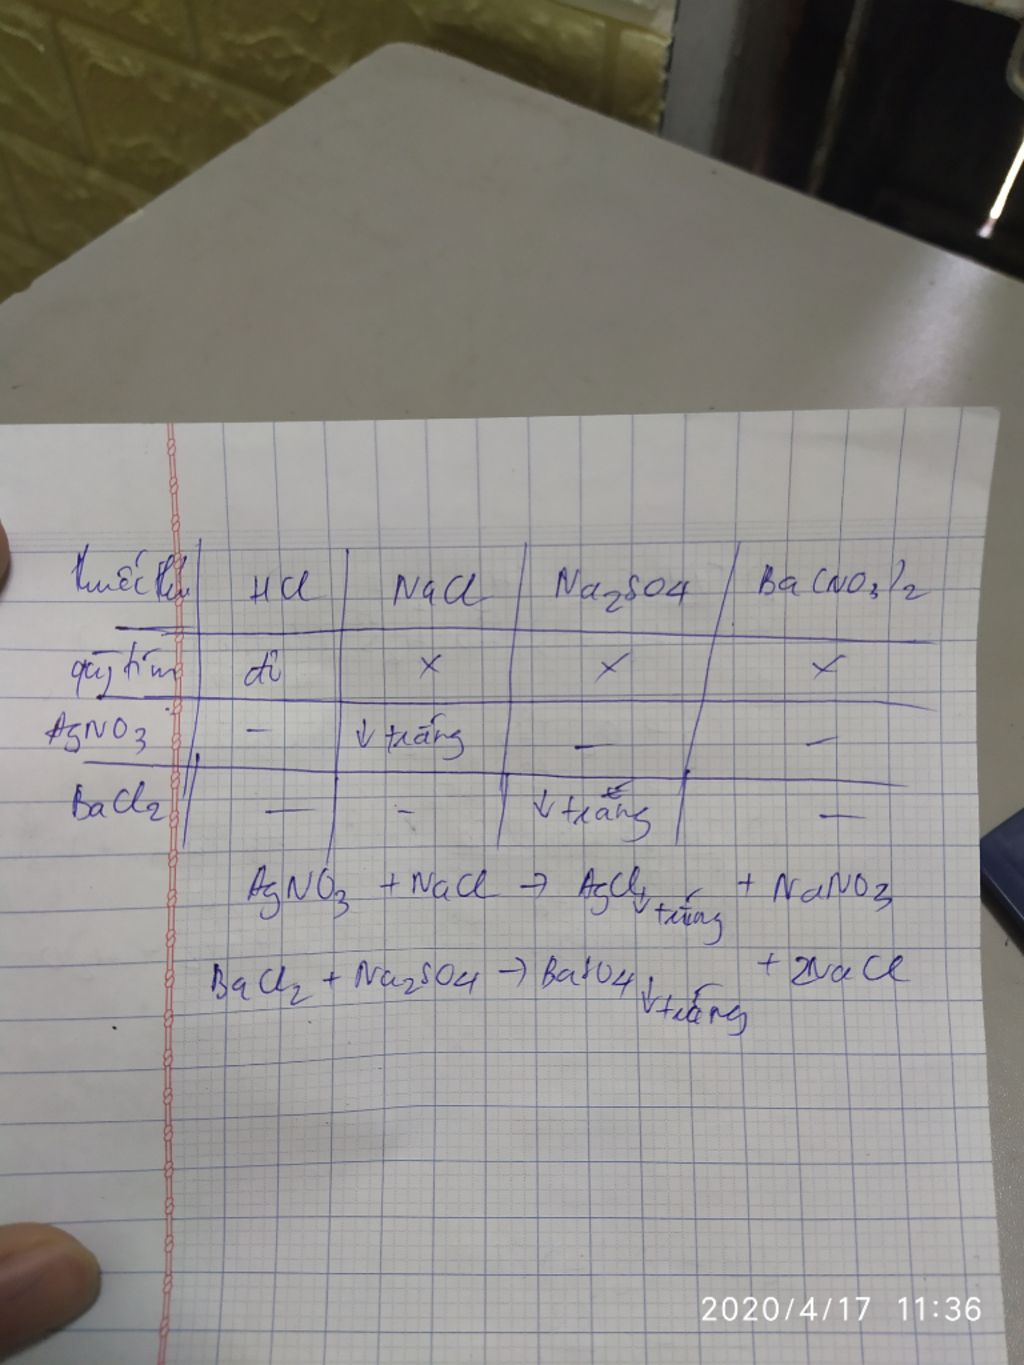 thuốc thử HCl NaCl Na2SO4 Ba(NO3)2
quỳ tím đỏ x x x
AgNO3 - ↓ trắng - -
BaCl2 - - ↓ trắng -
AgNO3 + NaCl → AgCl↓ trắng + NaNO3
BaCl2 + Na2SO4 → BaSO4↓ trắng + 2NaCl
2020/4/17 11:36